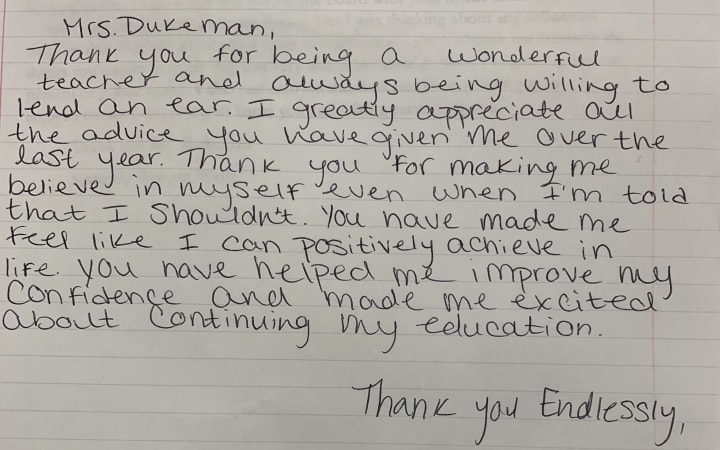 Mrs. Dukeman,
Thank you for being a wonderful
teacher and always being willing to
lend an ear. I greatly appreciate all
the advice you have given me over the
last year. Thank you for making me
believe in myself even when I'm told
that I shouldn't. You have made me
feel like I can positively achieve in
life. You have helped me improve my
confidence and made me excited
about continuing my education.
Thank you Endlessly,